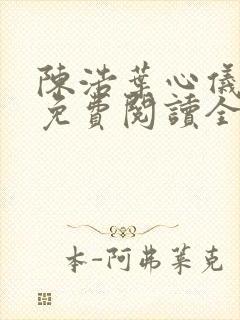 陳浩葉心儀
免費閱讀全
本-阿弗萊克